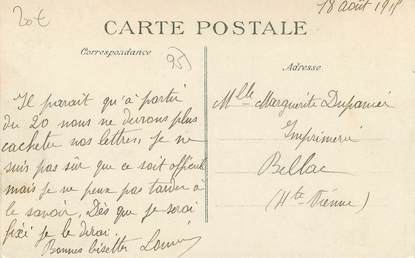 20€
18 août 191
CARTE POSTALE
Correspondance
95
Adresse
Il parait qu'à partir
du 20 nous ne devrons plus
cacheter nos lettres, je ne
suis pas sûr que ce soit officiel
mais je ne peux pas tarder à
le savoir. Dès que je serai
fixé je le dirai.
Bonnes bisettes Louis
Mlle Marguerite
Imprimerie
Bellac
(Hte Vienne)